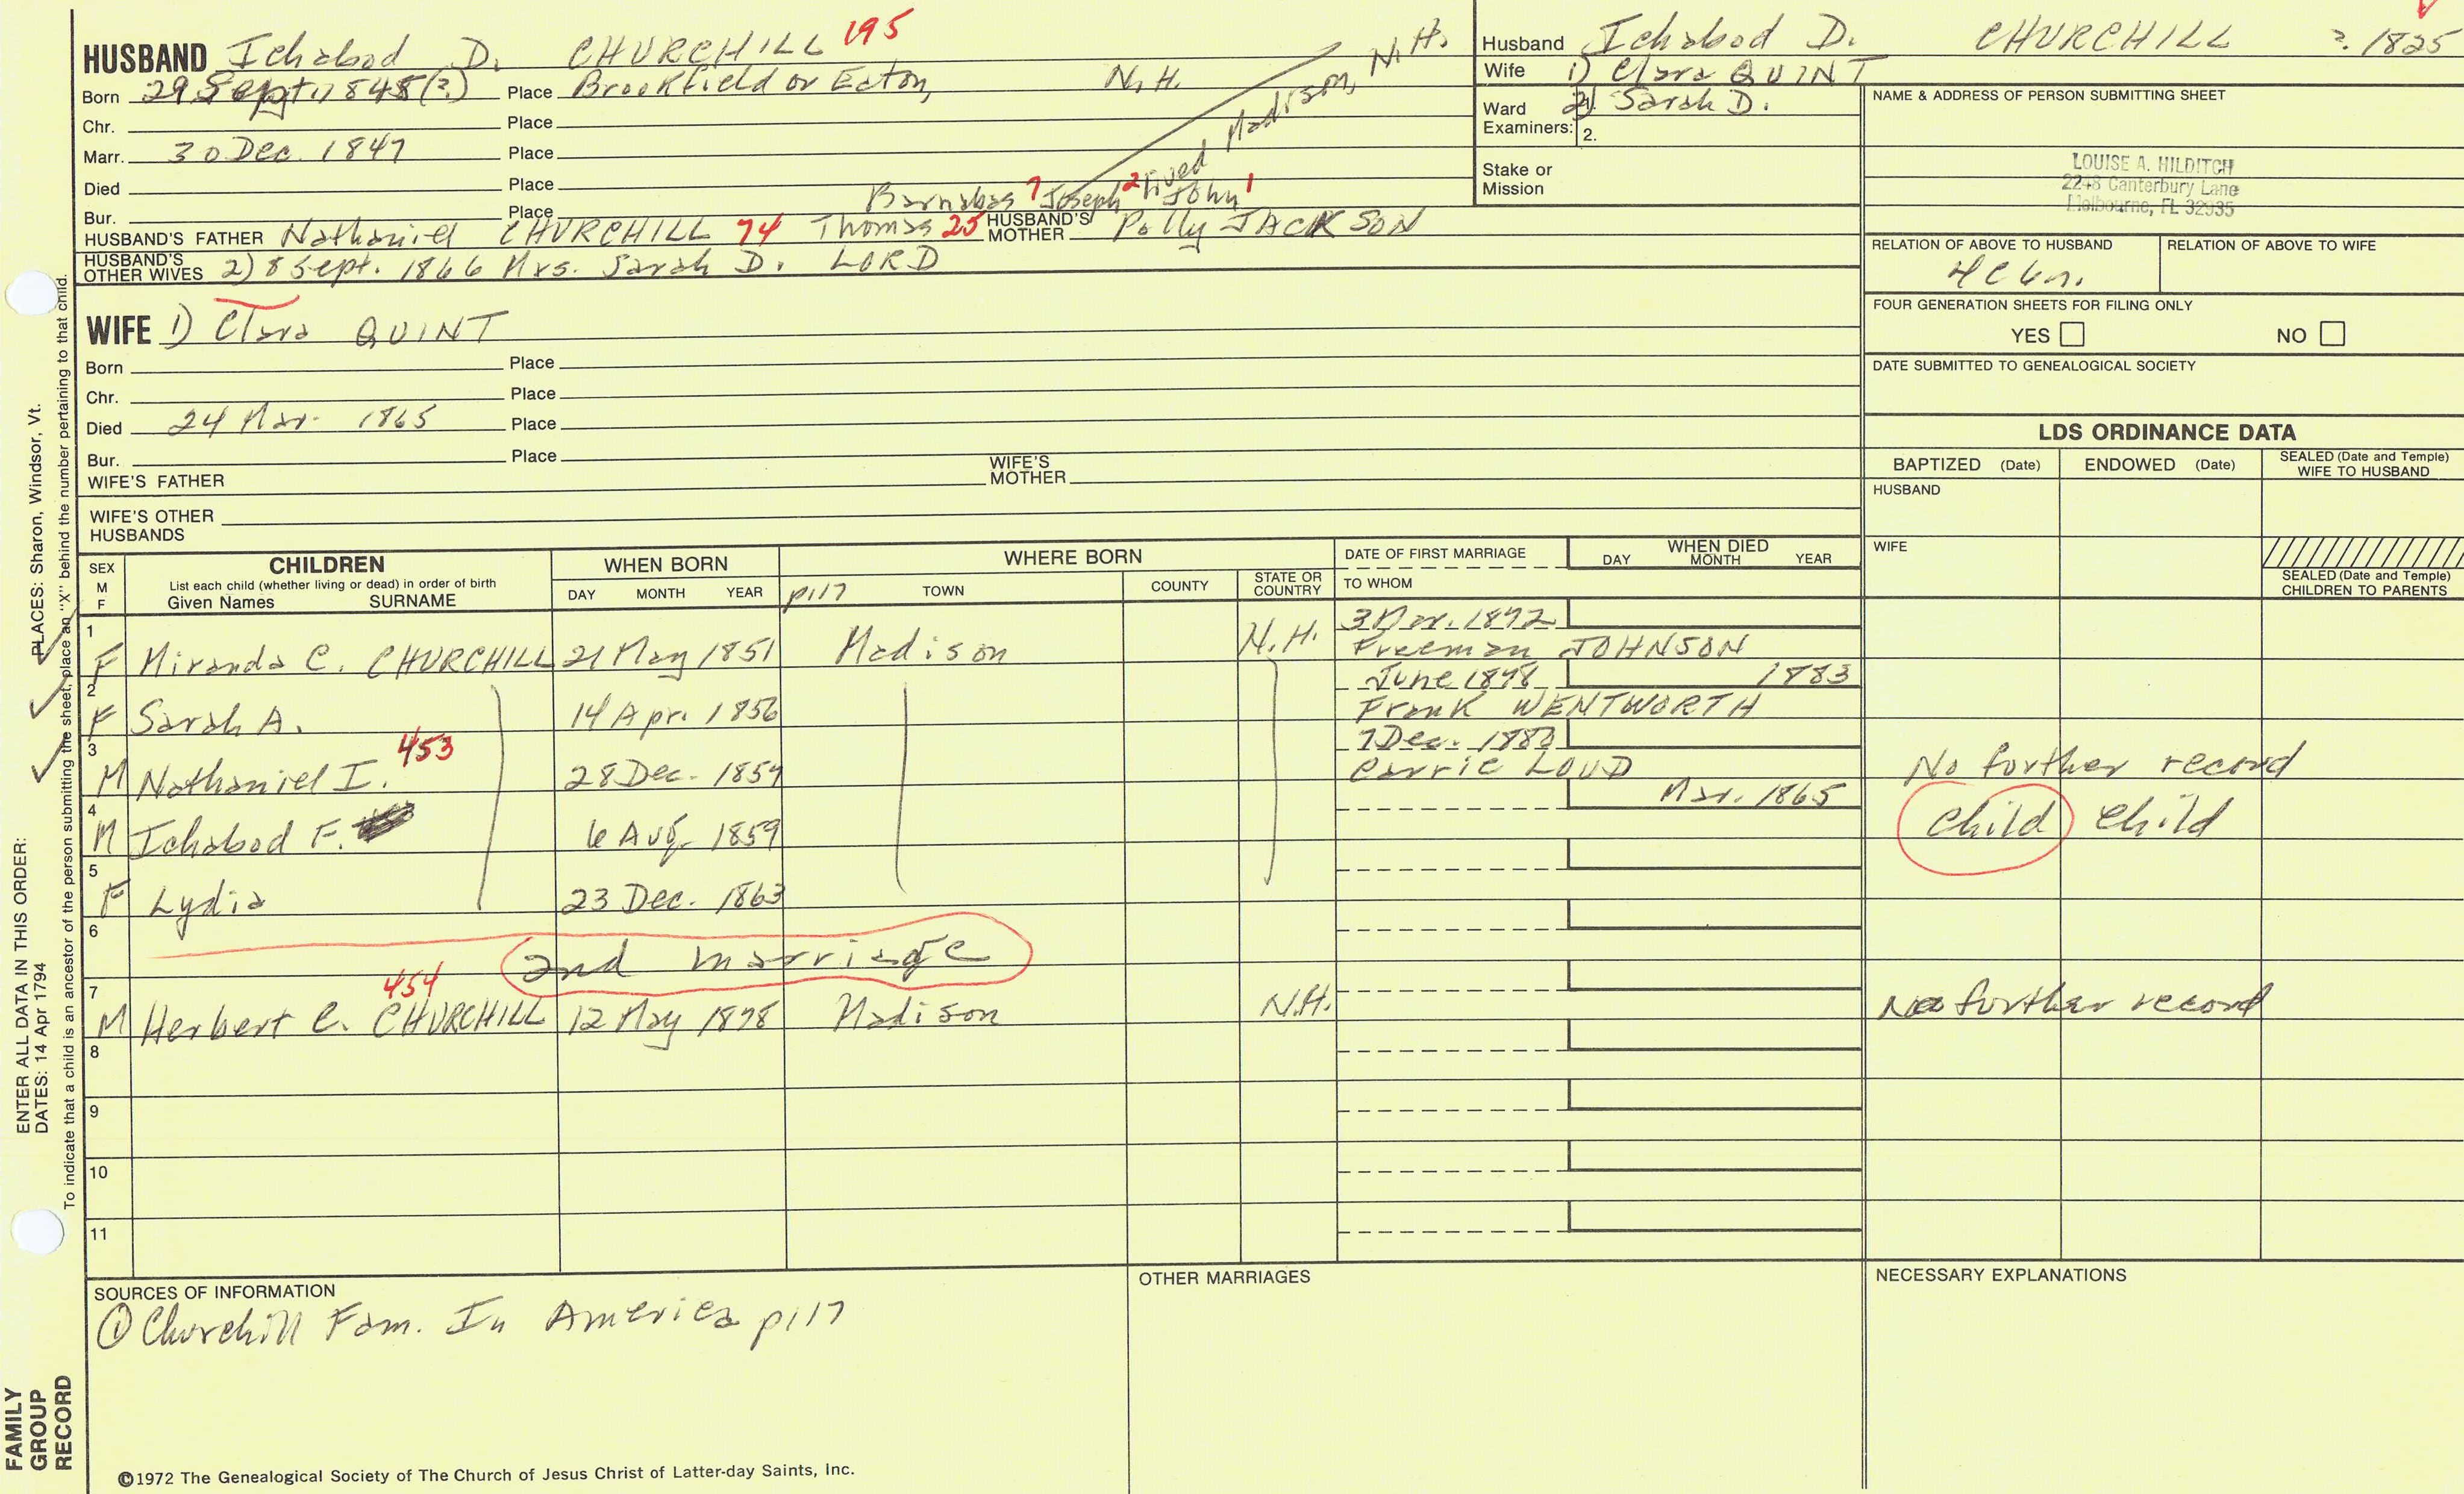 HUSBAND Ichabod D. CHURCHILL 195
Born 29 Sept. 1848(?) Place Brookfield or Eaton, N.H.
Chr. Place
Marr. 30 Dec. 1847 Place
Died Place
Bur. Place
lived Madison, N.H.
Barnabas 7 Joseph 2 John 1
HUSBAND'S FATHER Nathaniel CHURCHILL 74 Thomas 25 HUSBAND'S MOTHER Polly JACKSON
HUSBAND'S OTHER WIVES 2) 8 Sept. 1866 Mrs. Sarah D. LORD
WIFE 1) Clara QUINT
Born Place
Chr. Place
Died 24 Mar. 1865 Place
Bur. Place
WIFE'S FATHER WIFE'S MOTHER
WIFE'S OTHER HUSBANDS
Husband Ichabod D. CHURCHILL ?. 1825
Wife 1) Clara QUINT
Ward Examiners: 2) Sarah D.
2.
Stake or Mission
NAME & ADDRESS OF PERSON SUBMITTING SHEET
LOUISE A. HILDITCH
2248 Canterbury Lane
Melbourne, FL 32935
RELATION OF ABOVE TO HUSBAND RELATION OF ABOVE TO WIFE
FOUR GENERATION SHEETS FOR FILING ONLY
YES NO
DATE SUBMITTED TO GENEALOGICAL SOCIETY
LDS ORDINANCE DATA
BAPTIZED (Date) ENDOWED (Date) SEALED (Date and Temple) WIFE TO HUSBAND
HUSBAND
WIFE
SEALED (Date and Temple) CHILDREN TO PARENTS
SEX M F
CHILDREN
List each child (whether living or dead) in order of birth
Given Names SURNAME
WHEN BORN
DAY MONTH YEAR
WHERE BORN
p117 TOWN COUNTY STATE OR COUNTRY
DATE OF FIRST MARRIAGE
TO WHOM
WHEN DIED
DAY MONTH YEAR
1 F Miranda C. CHURCHILL 21 May 1851 Madison N.H. 3 Mar. 1872
Freeman JOHNSON
2 F Sarah A. 14 Apr. 1856 June 1878 1883
Frank WENTWORTH
3 M Nathaniel I. 453 28 Dec. 1857 7 Dec. 1882
Carrie LOUD No further record
4 M Ichabod F. 6 Aug. 1859 Mar. 1865 Child Child
5 F Lydia 23 Dec. 1863
6 2nd marriage
7 M Herbert C. CHURCHILL 454 12 May 1878 Madison N.H. No further record
8
9
10
11
SOURCES OF INFORMATION
① Churchill Fam. In America p117
OTHER MARRIAGES
NECESSARY EXPLANATIONS
©1972 The Genealogical Society of The Church of Jesus Christ of Latter-day Saints, Inc.
FAMILY GROUP RECORD
ENTER ALL DATA IN THIS ORDER:
DATES: 14 Apr 1794
PLACES: Sharon, Windsor, Vt.
To indicate that a child is an ancestor of the person submitting the sheet, place an "X" behind the number pertaining to that child.